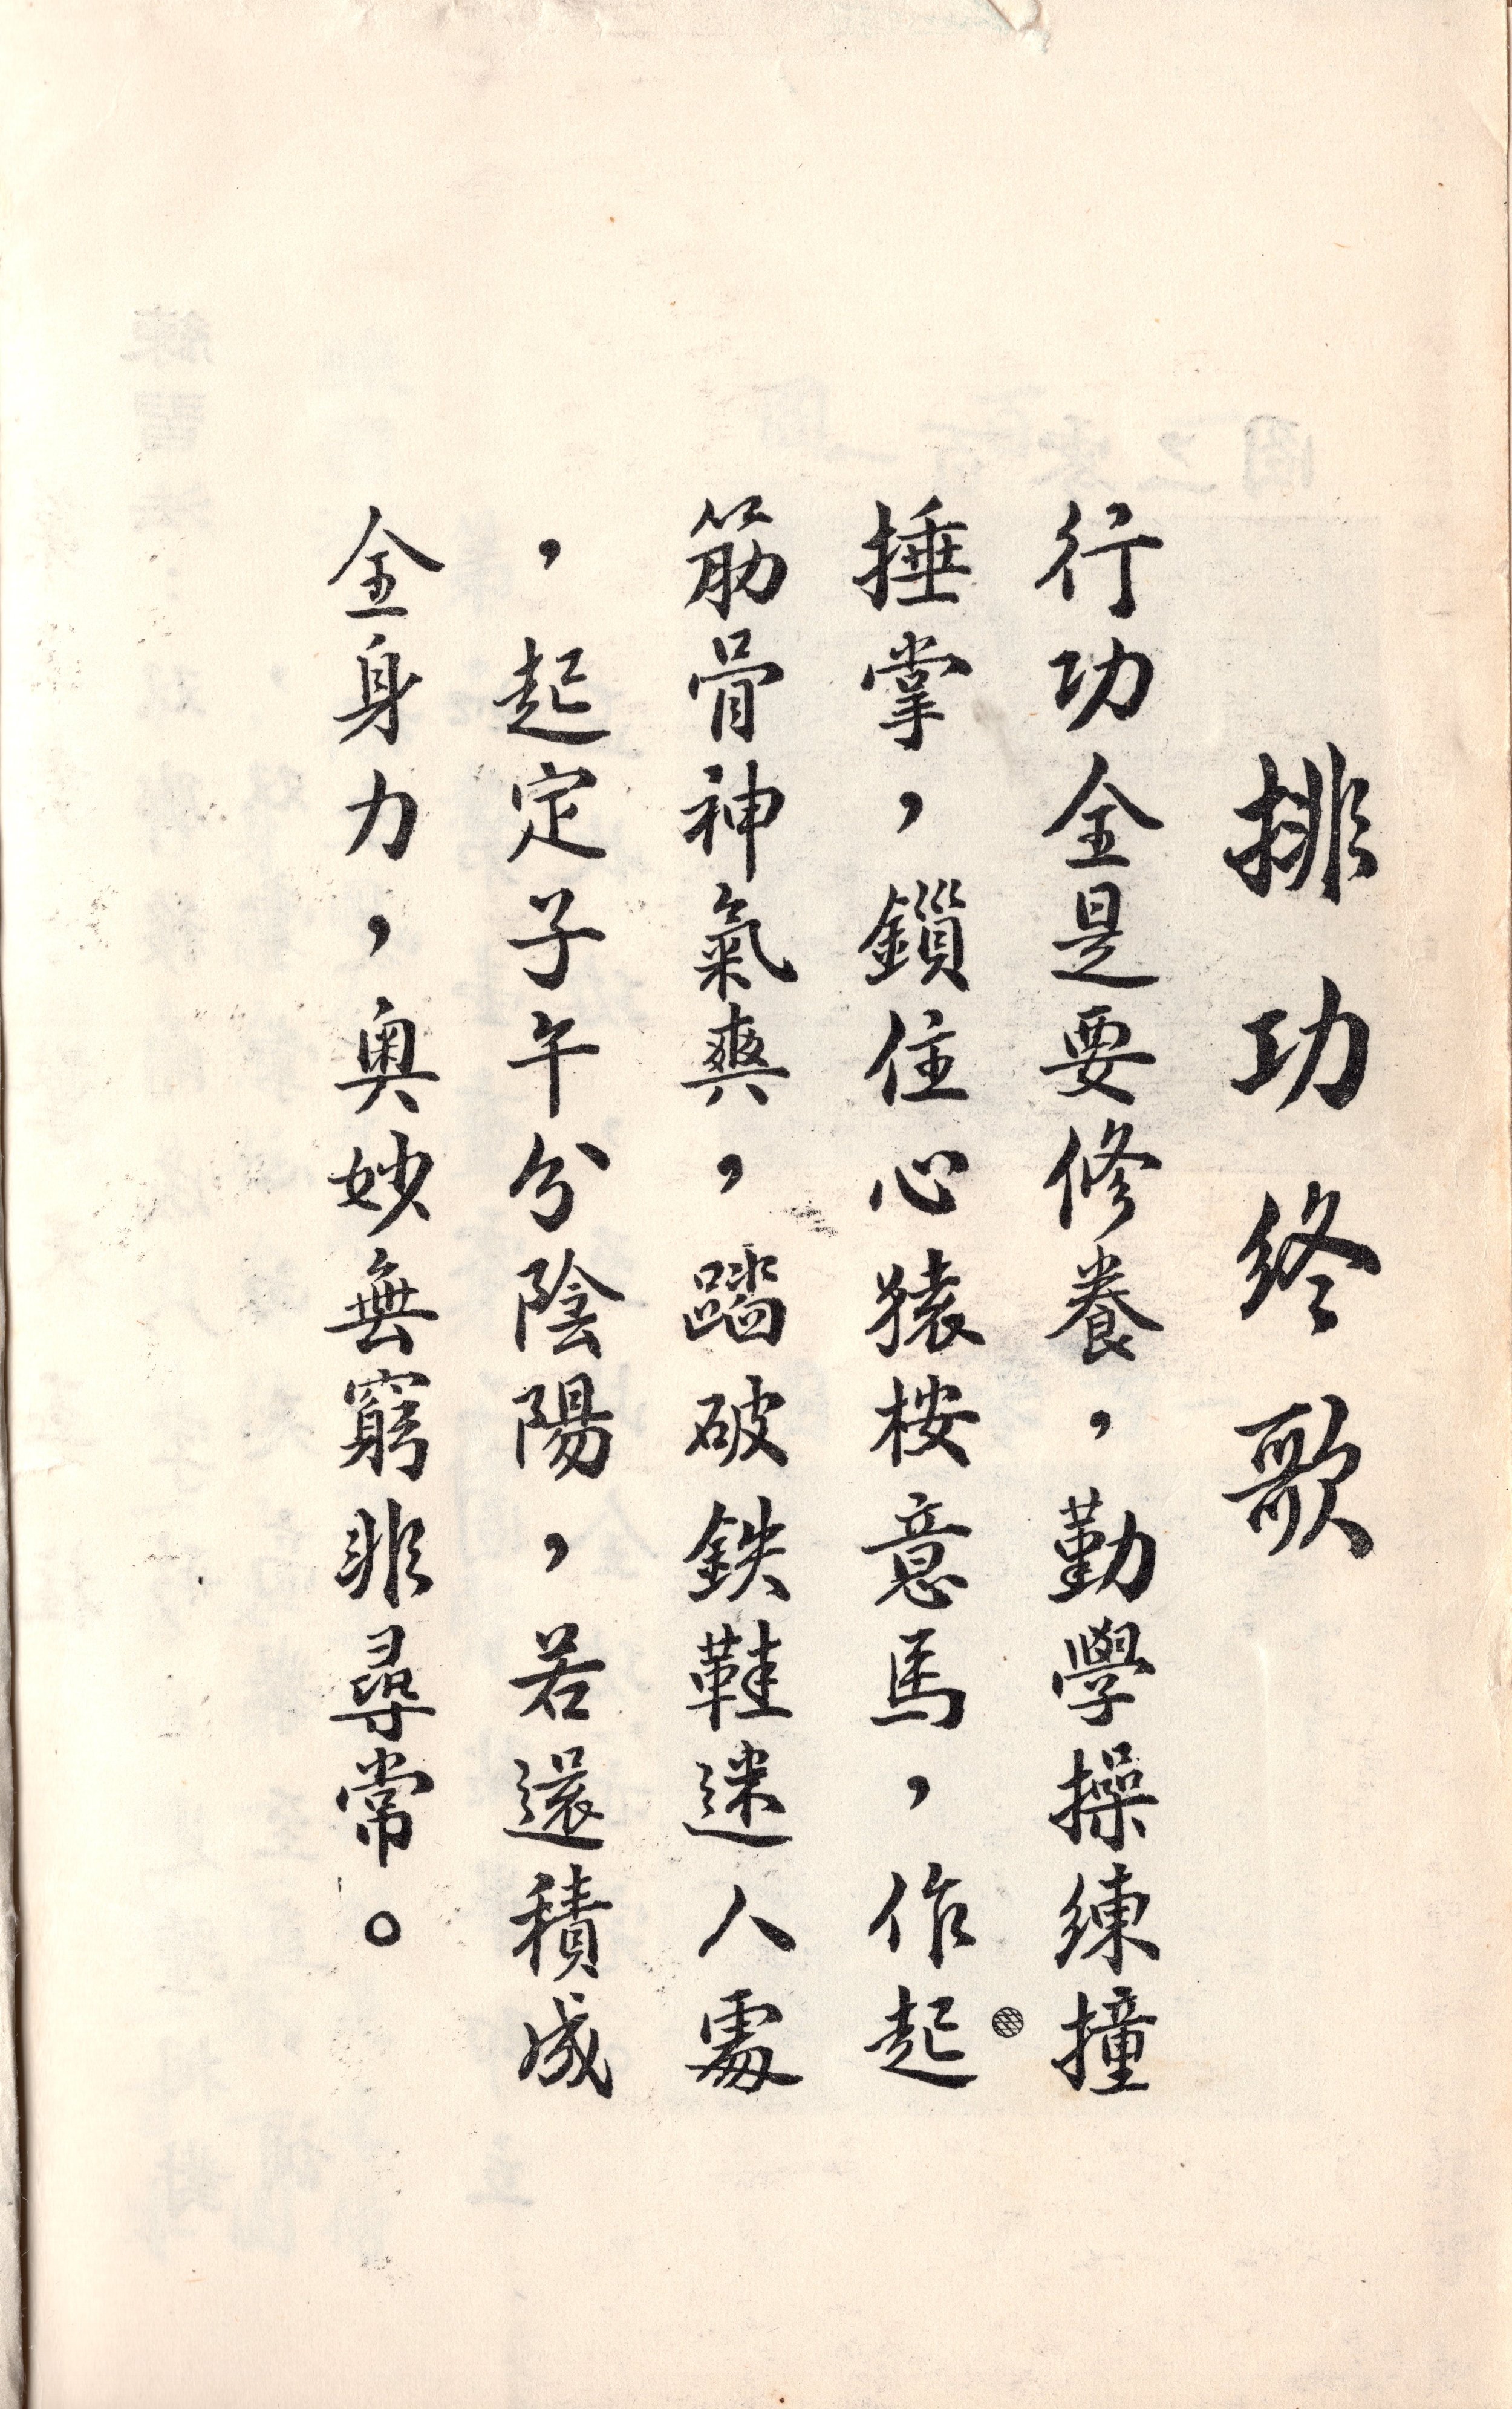 排功終歌
行功全是要修養，勤學操練撞
捶掌，鎖住心猿桉意馬，作起
筋骨神氣爽，踏破鉄鞋迷人處
，起定子午分陰陽，若還積成
全身力，奧妙無窮非尋常。